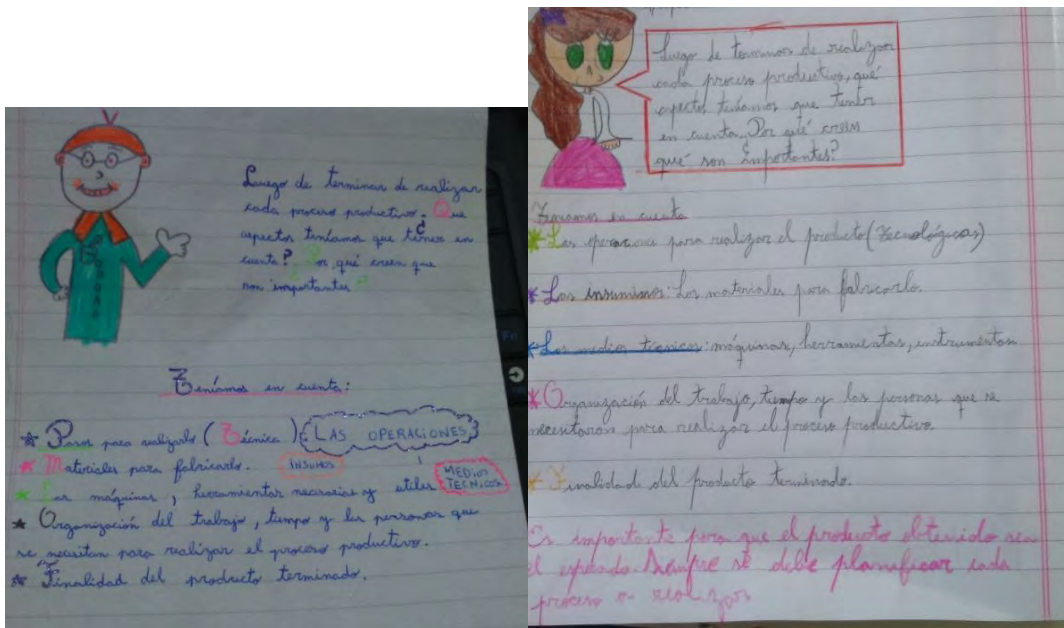 Luego de terminar de realizar
cada proceso productivo. Que
aspectos teníamos que tener en
cuenta? Por qué creen que
son importantes?
Teníamos en cuenta:
* Pasos para realizarlo (Técnica) LAS OPERACIONES
* Materiales para fabricarlo. INSUMOS
* Las máquinas, herramientas necesarias y útiles MEDIOS TECNICOS
* Organización del trabajo, tiempo y las personas que
se necesitan para realizar el proceso productivo.
* Finalidad del producto terminado.
Luego de terminar de realizar
cada proceso productivo, qué
aspectos teníamos que tener
en cuenta. Por qué creeis
qué son importantes?
Teníamos en cuenta
* Las operaciones para realizar el producto (Tecnológicas)
* Los insumimos: Los materiales para fabricarlo.
* Los medios tecnicos: máquinas, herramientas, instrumentos
* Organización del trabajo, tiempo y las personas que se
necesitaron para realizar el proceso productivo.
* Finalidad del producto terminado.
Es importante para que el producto obtenido sea
el esperado. Siempre se debe planificar cada
proceso a realizar
Fn